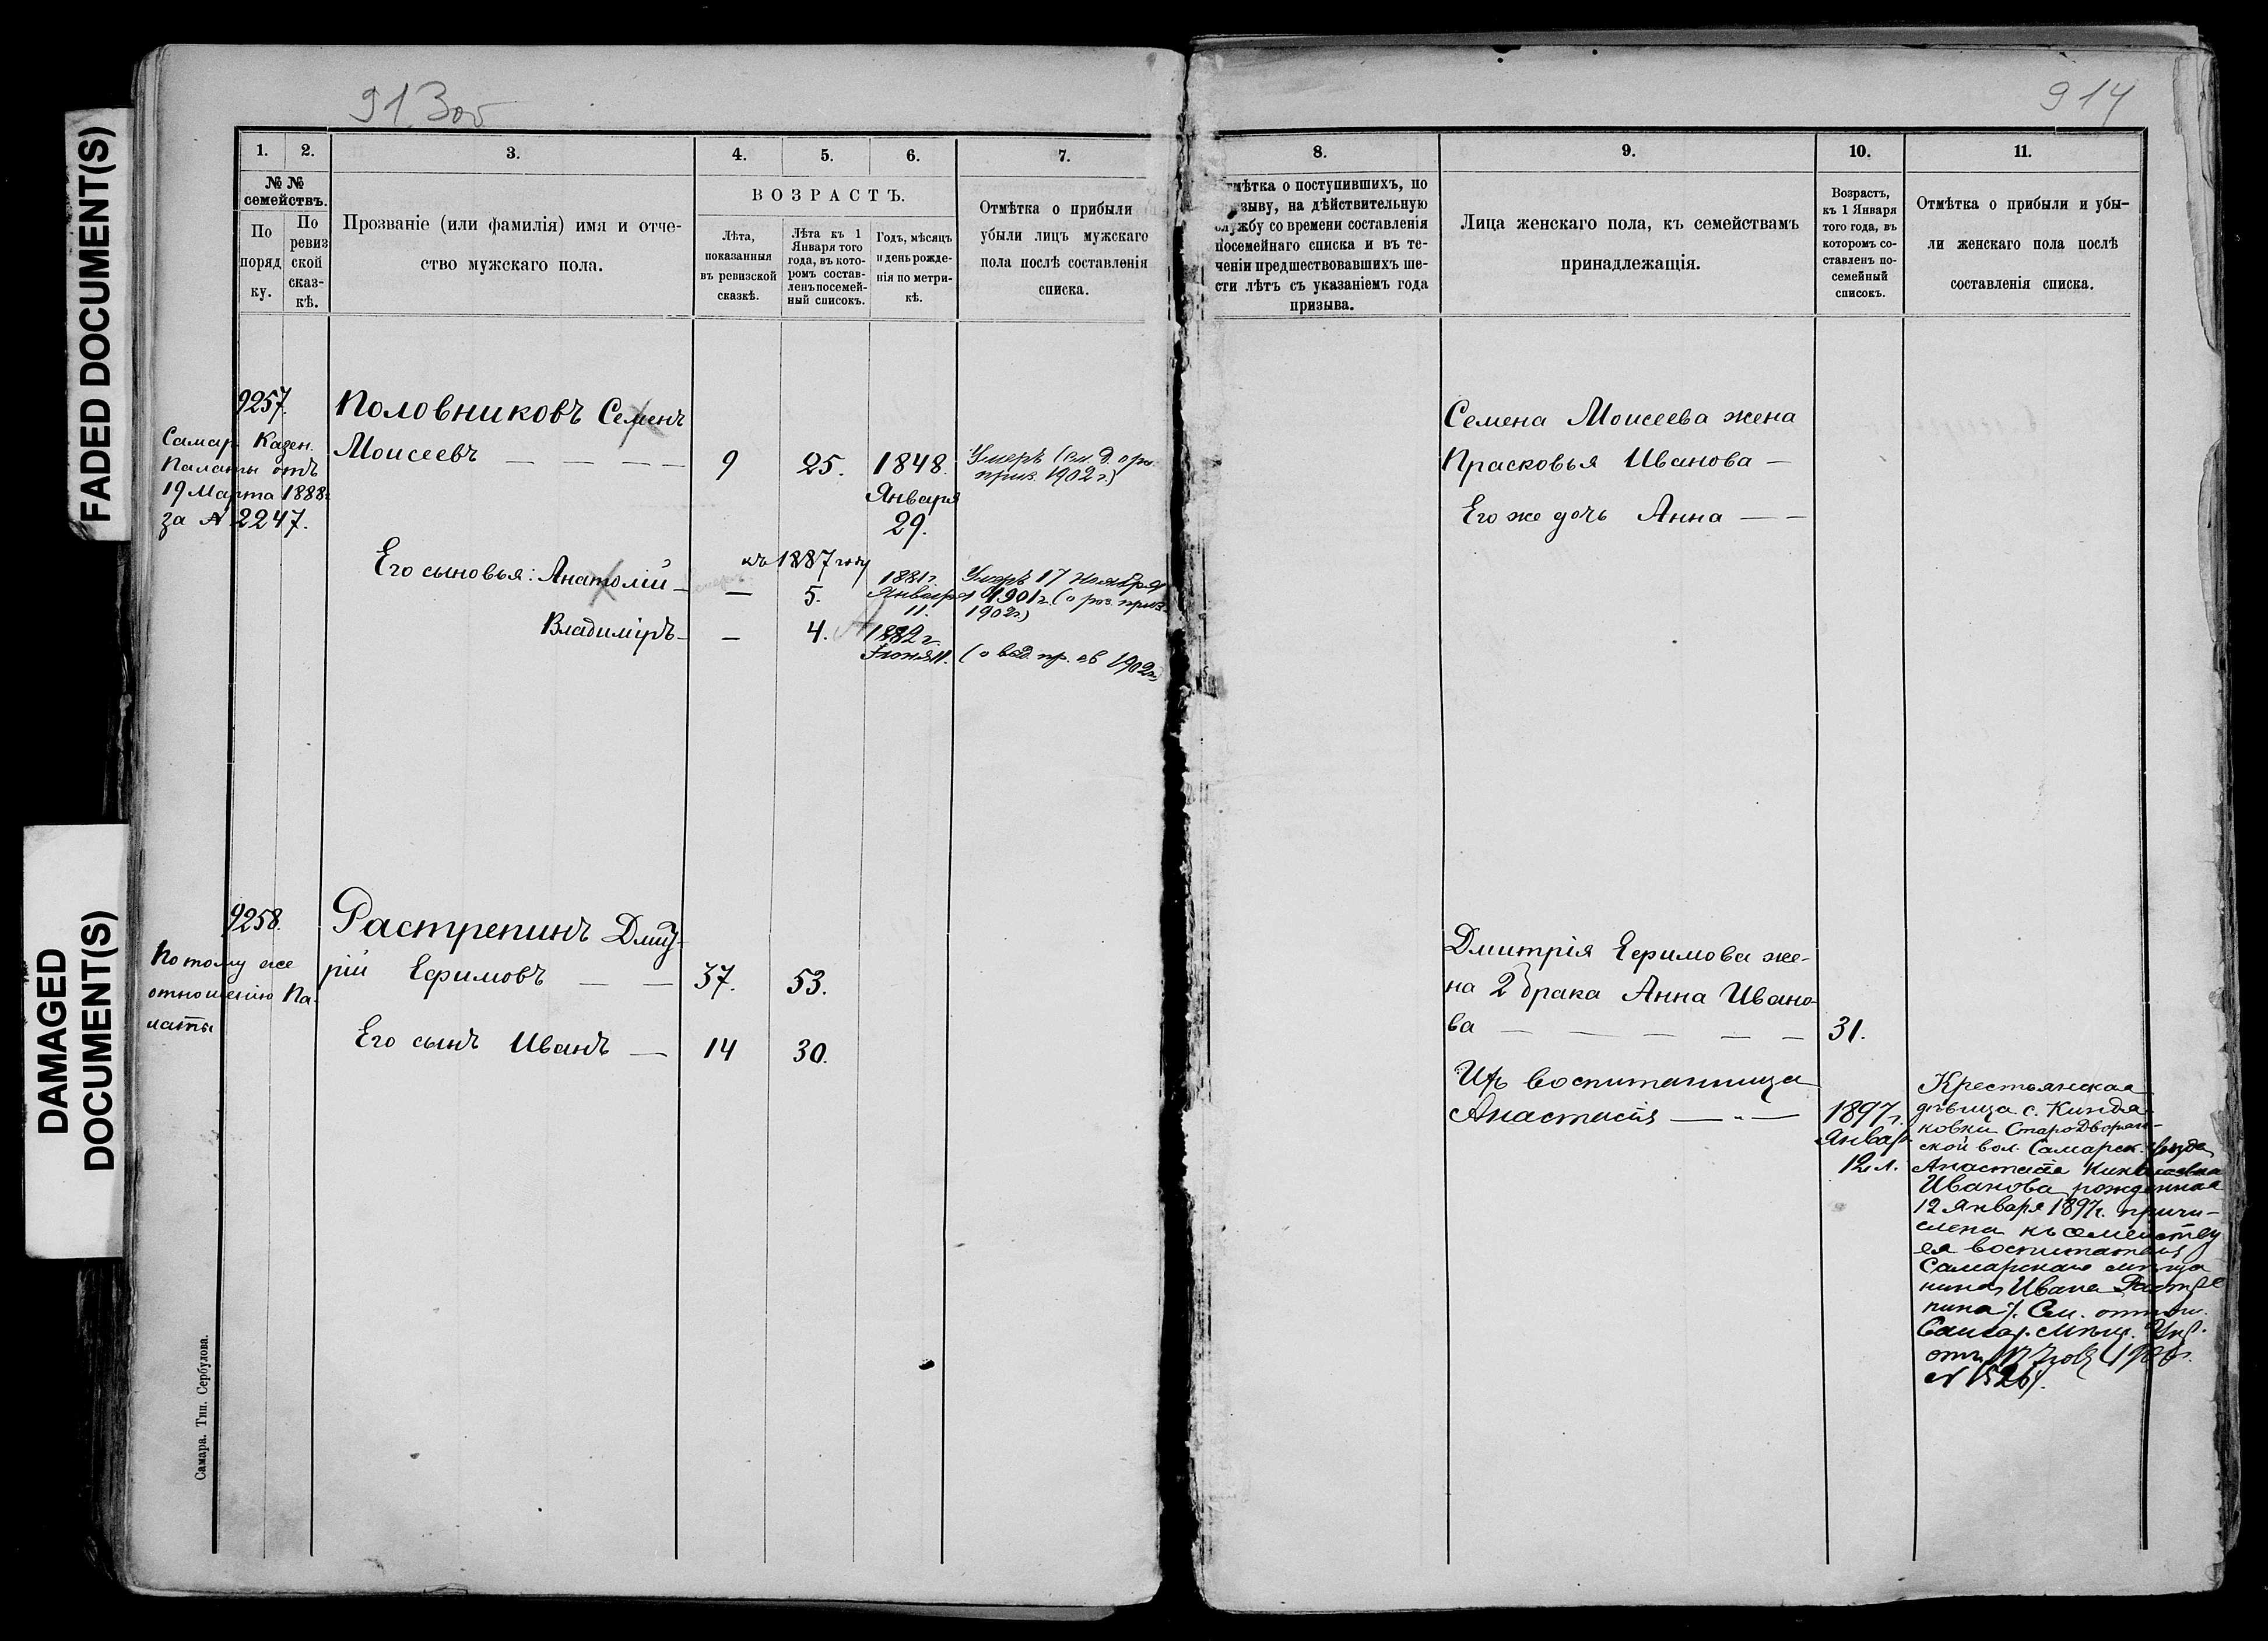 FADED DOCUMENT(S)
DAMAGED
DOCUMENT(S)
913об
1. 2. 3. 4. 5. 6. 7.
№ №
семействъ.
По
поряд
ку.
По
ревиз
ской
сказ-
кѣ.
Прозваніе (или фамилія) имя и отче-
ство мужскаго пола.
ВОЗРАСТЪ.
Лѣта,
показанныя
въ ревизской
сказкѣ.
Лѣта къ 1
Января того
года, въ кото-
ромъ состав-
ленъ посемей-
ный списокъ.
Годъ, мѣсяцъ
и день рожде-
нія по метри-
кѣ.
Отмѣтка о прибыли
убыли лицъ мужскаго
пола послѣ составленія
списка.
9257.
Самар. Казен.
Палаты отъ
19 Марта 1888г.
за № 2247.
Половниковъ Семенъ
Моисеевъ — — — —
9
25.
1848.
Января
29.
Умеръ (см. д. о
приз. 1902 г.)
къ 1887 году
Его сыновья: Анатолій —
—
5.
1881 г.
Января
11.
Умеръ 17 Ноября
1901 г. (о роз. приз.
1902 г.)
Владиміръ —
—
4.
1882 г.
Іюня 11.
(о пр. въ 1902 г.)
9258.
По тому же
отношенію Па-
латы
Растрепинъ Дмит-
рій Ефимовъ — —
37.
53.
Его сынъ Иванъ —
14
30.
Самара. Тип. Сербулова.
914
8. 9. 10. 11.
тмѣтка о поступившихъ, по
зыву, на дѣйствительную
службу со времени составленія
посемейнаго списка и въ те-
ченіи предшествовавшихъ ше-
сти лѣтъ съ указаніемъ года
призыва.
Лица женскаго пола, къ семействамъ
принадлежащія.
Возрастъ,
къ 1 Января
того года, въ
которомъ со-
ставленъ по-
семейный
списокъ.
Отмѣтка о прибыли и убы-
ли женскаго пола послѣ
составленія списка.
Семена Моисеева жена
Прасковья Иванова —
Его же дочь Анна — —
Дмитрія Ефимова же-
на 2 брака Анна Ивано-
ва — — — — —
31.
Ихъ воспитанница
Анастасія — — —
1897 г.
Январ.
12
Крестьянская
дѣвица с. Киндя-
ковки Стародворян-
ской вол. Самарск. уѣзда
Анастасія Николаевна
Иванова, рожденная
12 Января 1897 г. причи-
слена къ семейству
ея воспитателя
Самарскаго мѣща
нина Ивана Растре
пина. См. отнош.
Самар. Мѣщ. Упр.
отъ
№ 1526.